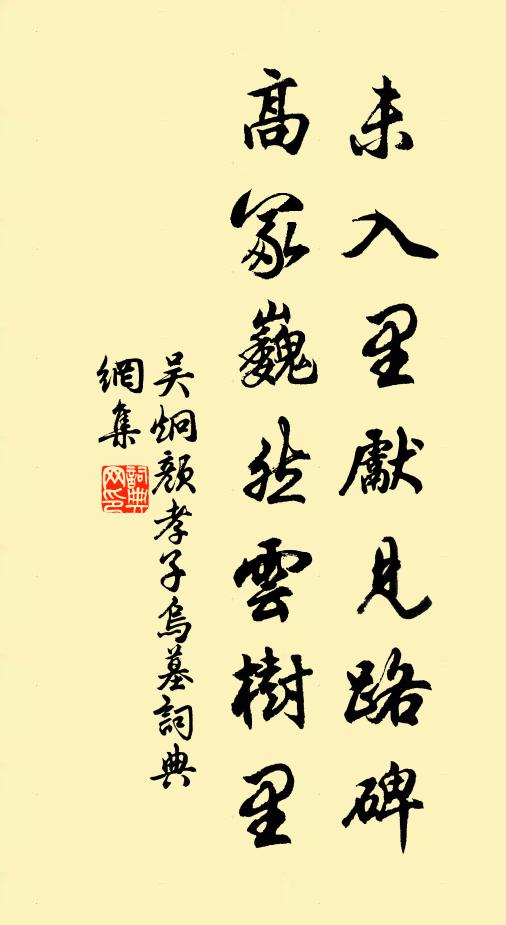 未入里獻見路碑
高冢巍然雲樹里
吴炯顏孝子烏墓詞典
網集
詞典網印